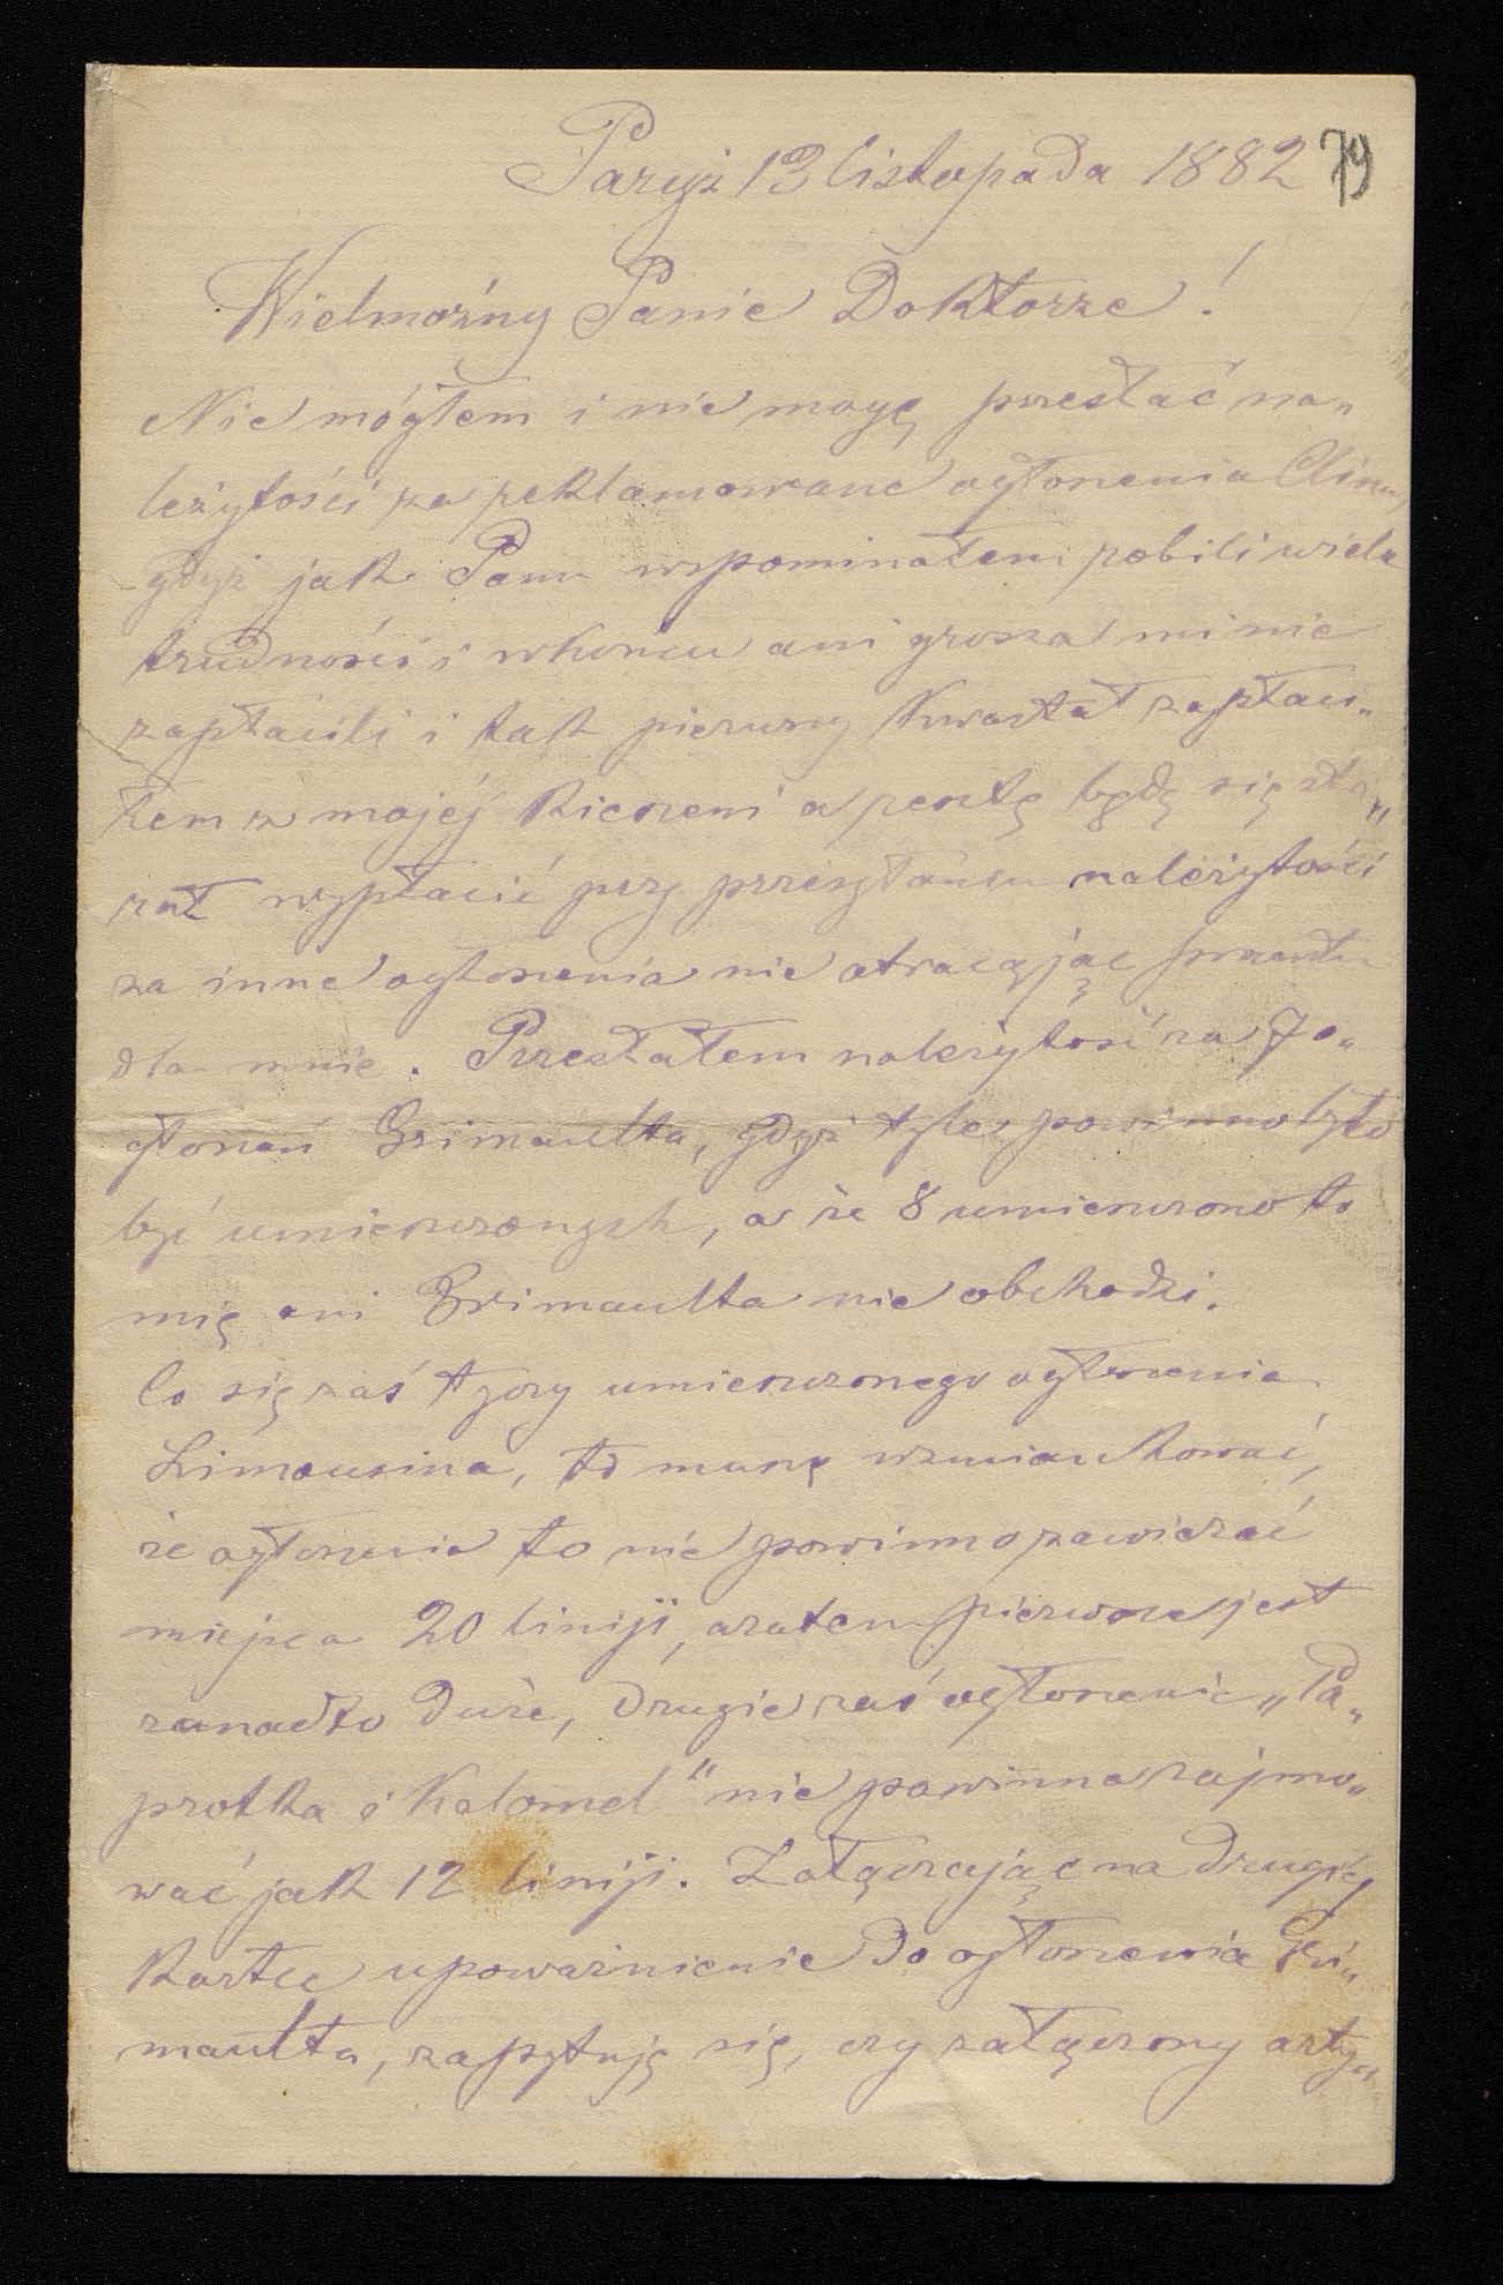 Paryż 13 listopada 1882 79
Wielmożny Panie Doktorze!
Nie mógłem i nie mogę przesłać na„
leżytości za reklamowane ogłoszenia Clina,
gdyż jak Panu wspominałem robili wiele
trudności i wkońcu ani grosza mi nie
zapłacili i tak pierwszy Kwartał zapłaci„
łem z mojéj Kieszeni a resztę będę się sta„
rał wypłacić przy przesyłaniu należytości
za inne ogłoszenia nie otracając
dla mnie. Przesłałem należytość za 7 o„
głoszeń Grimaulta, gdyż tyle powinno było
być umieszczonych, a że 8 umieszczono to
mię ani Grimaulta nie obchodzi.
Co się zaś tyczy umieszczonego ogłoszenia
Limousina, to muszę wzmiankować,
że ogłoszenie to nie powinno zawierać
miejsca 20 liniji, a zatem pierwsze jest
zanadto duże, drugie zaś ogłoszenie „Pa„
protka i Kalomel" nie powinna zajmo„
wać jak 12 liniji. Załączając na drugiéj
Kartce upoważnienie do ogłoszenia Gri„
maulta, zapytuję się, czy załączony arty„